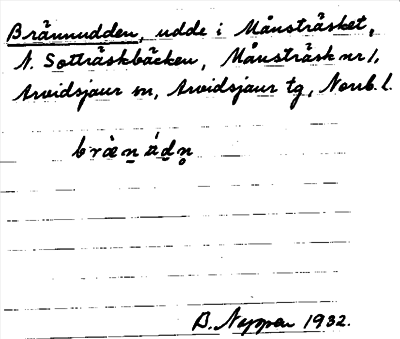 Brännudden, udde i Månsträsket,
N. Sotträskbäcken, Månsträsk nr 1,
Arvidsjaur sn, Arvidsjaur tg, Norrb. l.
brǽn údn̥
B. Neppen 1932.